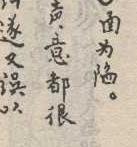 面为隐。
声意都很
遂又误以